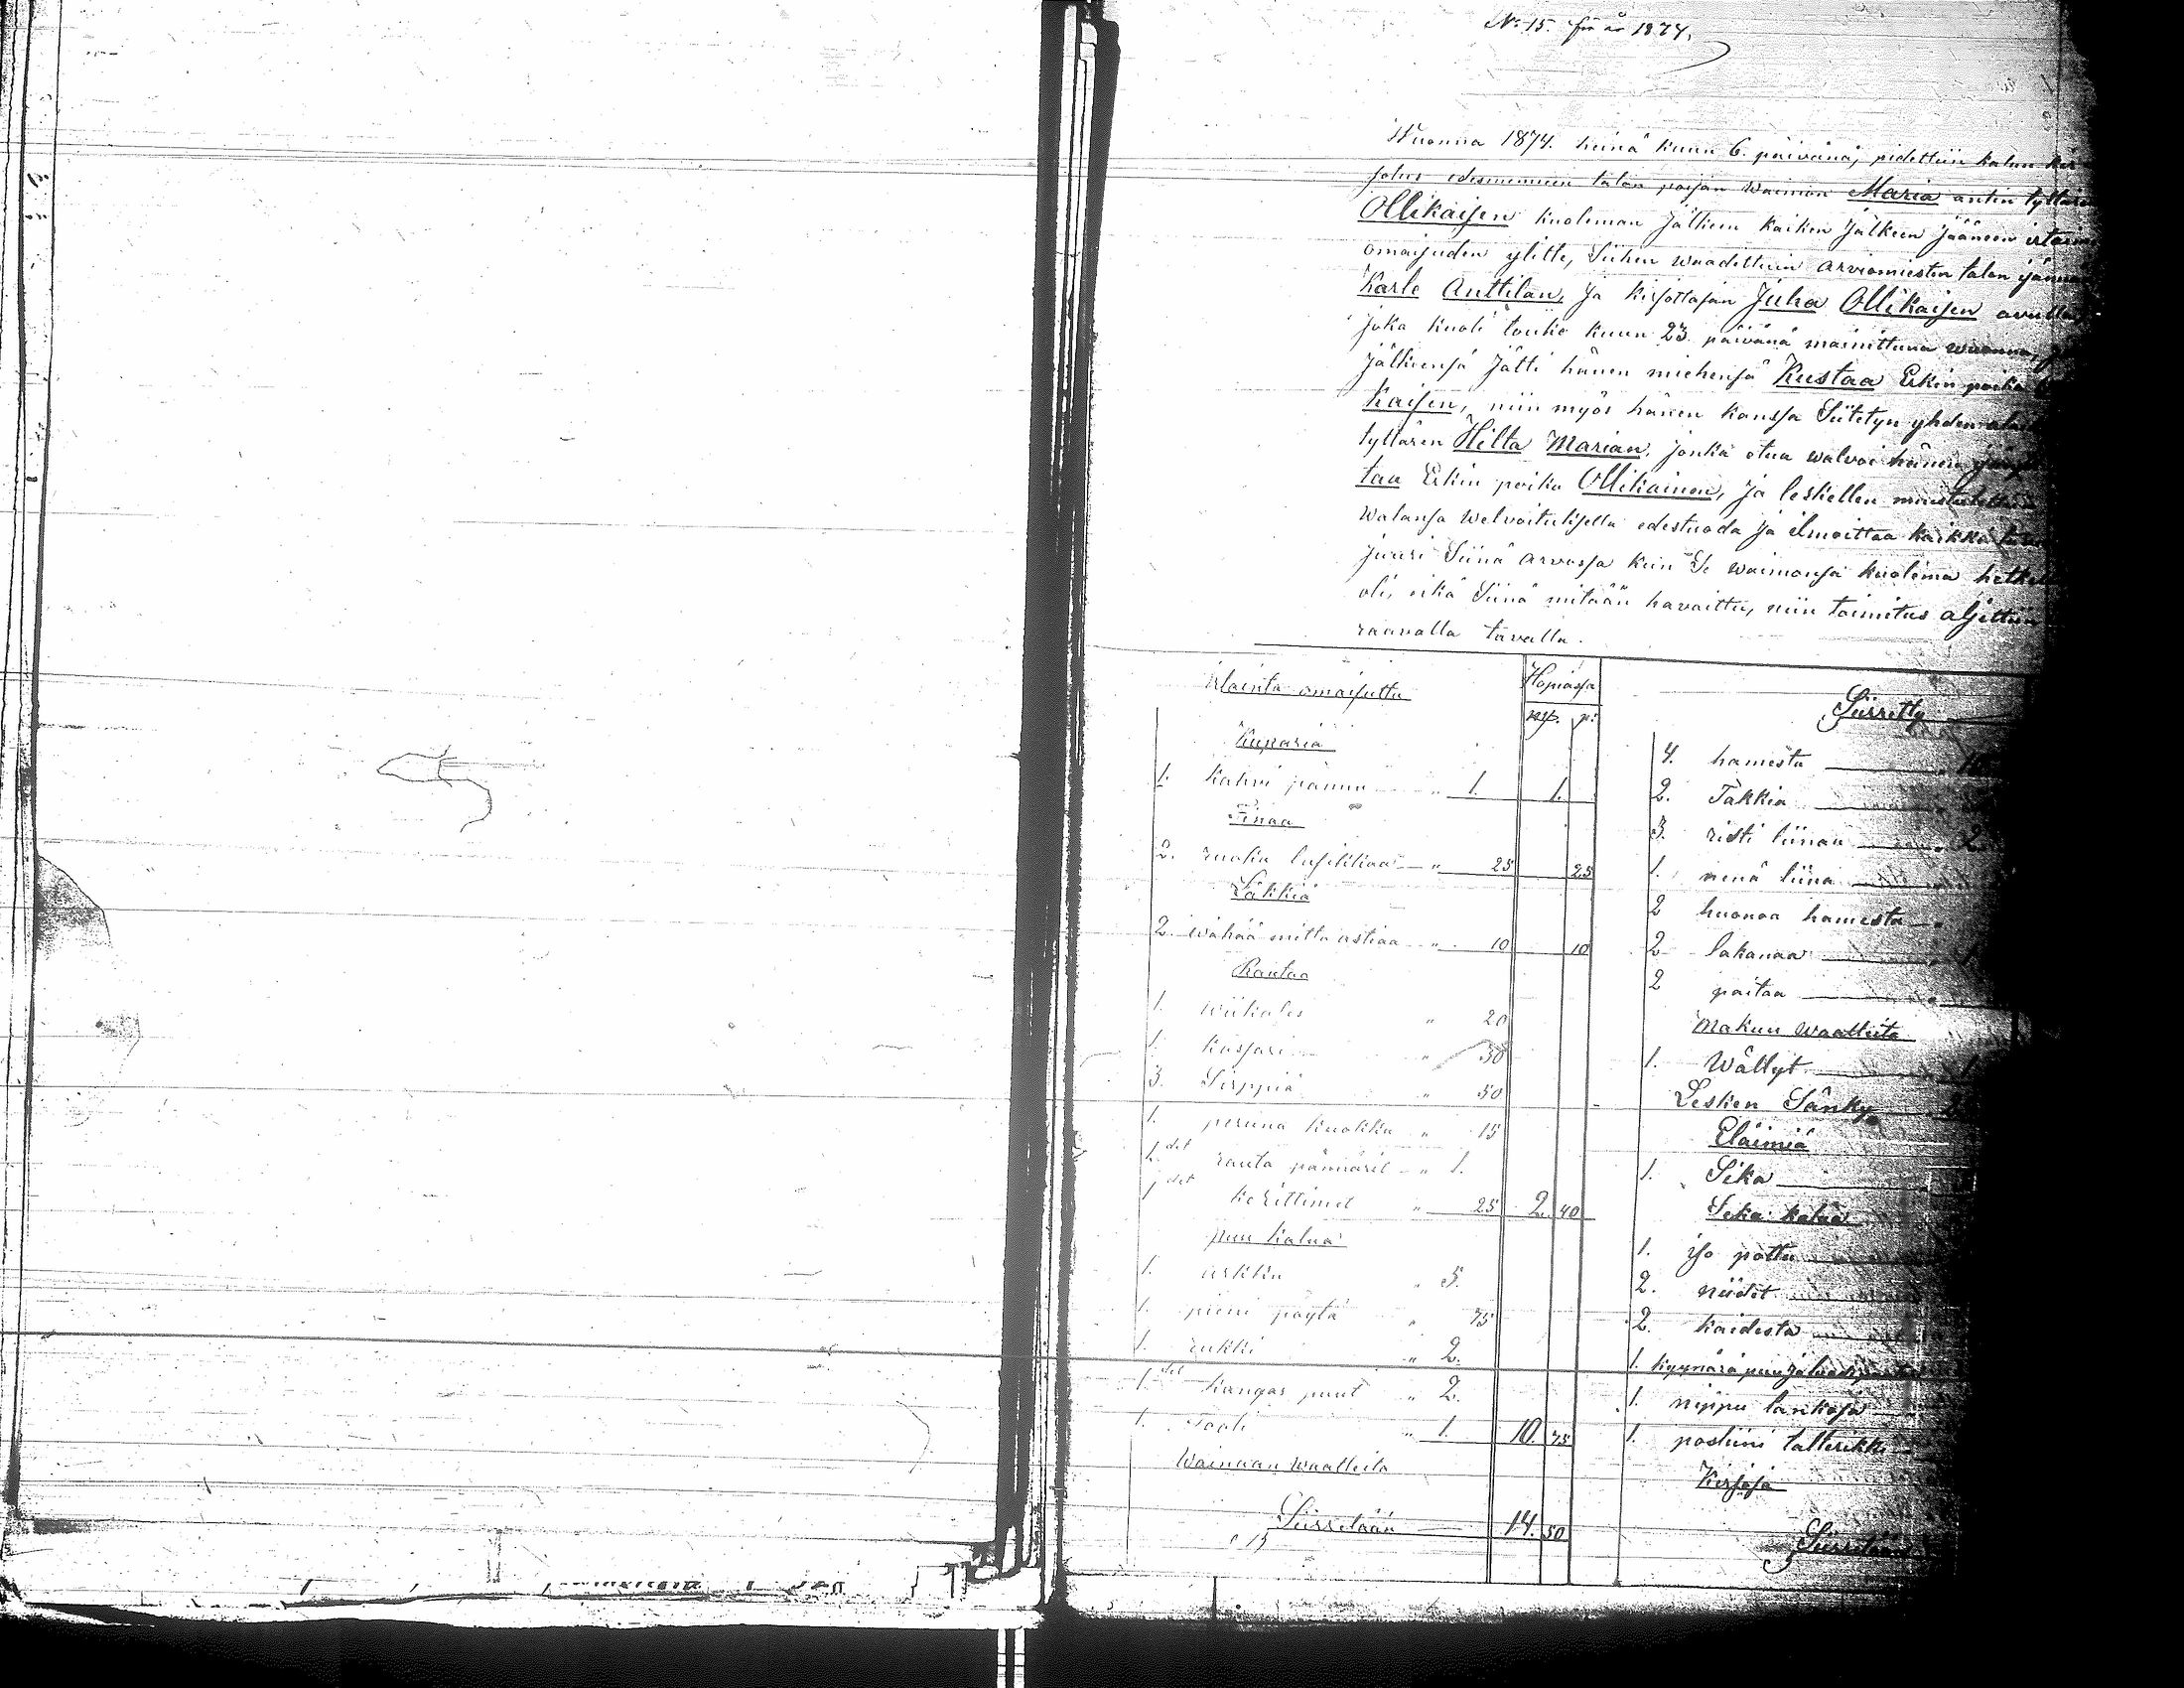 No 15. för år 1874.
Wuonna 1874. heinä kuun 6. päivänä, pidettiin kalun kir
jotus edesmenneen talon pojan waimon Maria antin tyttären
Ollikaisen kuoleman jälkeen kaiken jälkeen jääneen irtaimen
omaisuden ylitte, Siihen waadittuin arviomiesten talon isännän
Karle Anttilan, ja kirjottajan Juha Ollikaisen avulla,
joka kuoli touko kuun 23. päivänä mainittuna wuonna,
jälkeensä jätti hänen miehensä Kustaa Erkin poika
kaisen, niin myös hänen kanssa Siitetyn yhden
tyttären Hilta Marian, jonka etua walvoi hänen
taa Erkin poika Ollikainen, ja leskellen
walansa welvoituksella edestuoda ja ilmoittaa kaikki
juuri Siinä arvossa kuin Se waimonsa kuolema hetkellä
oli, eikä Siinä mitään havaittu, niin toimitus aljettiin
raavalla tavalla.
Irtainta omaisutta Hopiassa
rup. p:
Kuparia
1. kahvi pannu " 1. 1.
Tinaa
2. ruoka lusikkaa " 25 25
Läkkiä
2. wähää mitta astiaa " 10 10
Rautaa
1. wiikates " 20
1. kassari " 30
3. Sirppiä " 50
1. peruna kuokka " 15
1. det rauta pännärit " 1.
1 det kerittimet " 25 2. 40
puu kalua
1. arkku " 5.
1. pieni pöytä " 75
1. rukki " 2.
1. det kangas puut " 2.
1. Tooli " 1. 10. 75
Waimoan waatteita
Siirretään 14. 50
Siirretty
4. hamesta
2. Takkia
3. risti liinaa 2
1. nenä liina
2 huonoa hamesta
2 lakanaa
2 paitaa
Makuu waatteita
1. Wällyt
Lesken Sänky
Eläimiä
1. Sika
Seka kalua
1. iso patta
2. niidet
2. kaidesta
1. kyynärä puu ja
1. nippu lankoja
1. posliini tallerikki
Kirjoja
Siirretään